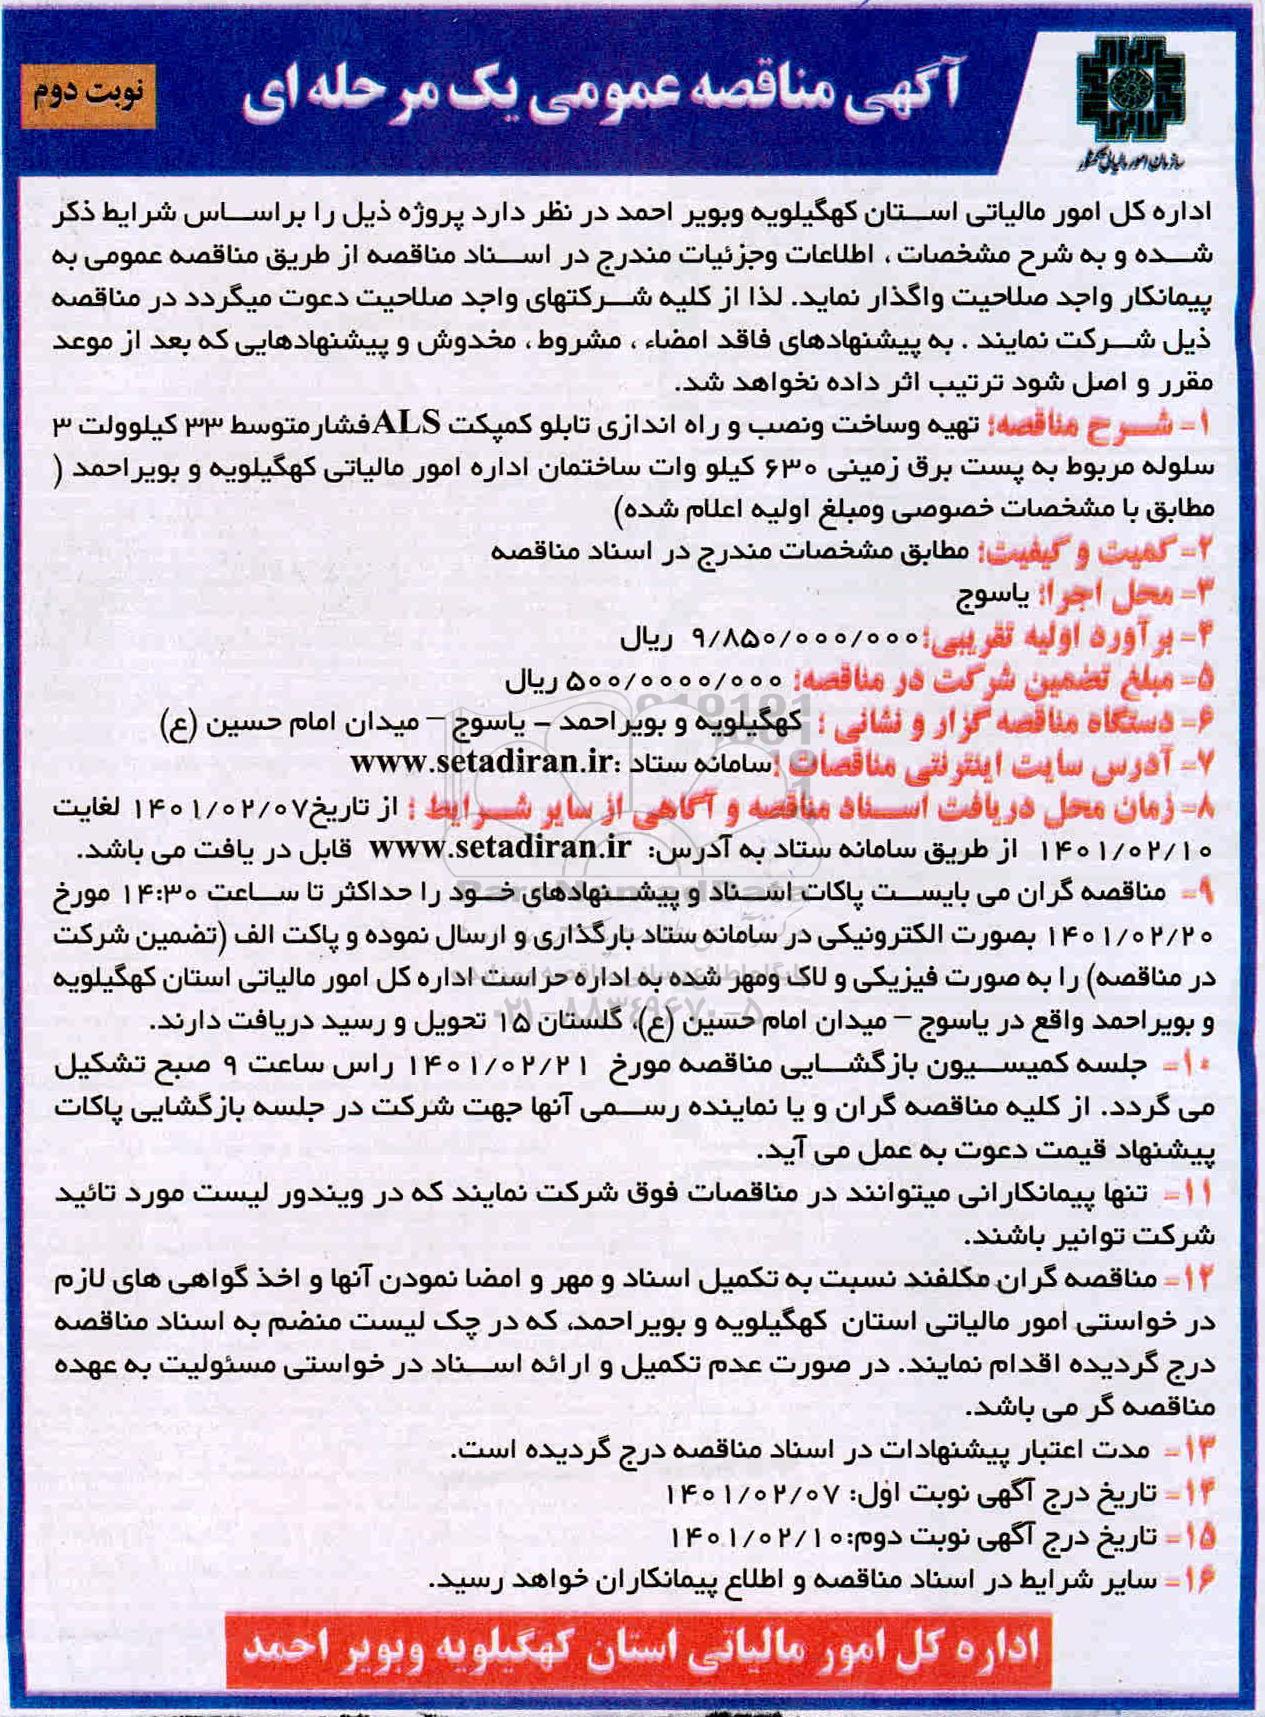 آگهی مناقصه عمومی یک مرحله ای
نوبت دوم
سازمان امور مالیاتی کشور
اداره کل امور مالیاتی استان کهگیلویه وبویر احمد در نظر دارد پروژه ذیل را براساس شرایط ذکر
شده و به شرح مشخصات ، اطلاعات وجزئیات مندرج در اسناد مناقصه از طریق مناقصه عمومی به
پیمانکار واجد صلاحیت واگذار نماید. لذا از کلیه شرکتهای واجد صلاحیت دعوت میگردد در مناقصه
ذیل شرکت نمایند . به پیشنهادهای فاقد امضاء ، مشروط ، مخدوش و پیشنهادهایی که بعد از موعد
مقرر و اصل شود ترتیب اثر داده نخواهد شد.
۱- شرح مناقصه: تهیه وساخت ونصب و راه اندازی تابلو کمپکت ALS فشارمتوسط ۳۳ کیلوولت ۳
سلوله مربوط به پست برق زمینی ۶۳۰ کیلو وات ساختمان اداره امور مالیاتی کهگیلویه و بویراحمد (
مطابق با مشخصات خصوصی ومبلغ اولیه اعلام شده)
۲- کمیت و کیفیت: مطابق مشخصات مندرج در اسناد مناقصه
۳- محل اجرا: یاسوج
۴- برآورد اولیه تقریبی: ۹/۸۵۰/۰۰۰/۰۰۰ ریال
۵- مبلغ تضمین شرکت در مناقصه: ۵۰۰/۰۰۰۰/۰۰۰ ریال
۶- دستگاه مناقصه گزار و نشانی : کهگیلویه و بویراحمد – یاسوج – میدان امام حسین (ع)
۷- آدرس سایت اینترنتی مناقصات : سامانه ستاد :www.setadiran.ir
۸- زمان محل دریافت اسناد مناقصه و آگاهی از سایر شرایط : از تاریخ ۱۴۰۱/۰۲/۰۷ لغایت
۱۴۰۱/۰۲/۱۰ از طریق سامانه ستاد به آدرس: www.setadiran.ir قابل در یافت می باشد.
۹- مناقصه گران می بایست پاکات اسناد و پیشنهادهای خود را حداکثر تا ساعت ۱۴:۳۰ مورخ
۱۴۰۱/۰۲/۲۰ بصورت الکترونیکی در سامانه ستاد بارگذاری و ارسال نموده و پاکت الف (تضمین شرکت
در مناقصه) را به صورت فیزیکی و لاک ومهر شده به اداره حراست اداره کل امور مالیاتی استان کهگیلویه
و بویراحمد واقع در یاسوج – میدان امام حسین (ع)، گلستان ۱۵ تحویل و رسید دریافت دارند.
۱۰- جلسه کمیسیون بازگشایی مناقصه مورخ ۱۴۰۱/۰۲/۲۱ راس ساعت ۹ صبح تشکیل
می گردد. از کلیه مناقصه گران و یا نماینده رسمی آنها جهت شرکت در جلسه بازگشایی پاکات
پیشنهاد قیمت دعوت به عمل می آید.
۱۱- تنها پیمانکارانی میتوانند در مناقصات فوق شرکت نمایند که در ویندور لیست مورد تائید
شرکت توانیر باشند.
۱۲- مناقصه گران مکلفند نسبت به تکمیل اسناد و مهر و امضا نمودن آنها و اخذ گواهی های لازم
در خواستی امور مالیاتی استان کهگیلویه و بویراحمد، که در چک لیست منضم به اسناد مناقصه
درج گردیده اقدام نمایند. در صورت عدم تکمیل و ارائه اسناد در خواستی مسئولیت به عهده
مناقصه گر می باشد.
۱۳- مدت اعتبار پیشنهادات در اسناد مناقصه درج گردیده است.
۱۴- تاریخ درج آگهی نوبت اول: ۱۴۰۱/۰۲/۰۷
۱۵- تاریخ درج آگهی نوبت دوم: ۱۴۰۱/۰۲/۱۰
۱۶- سایر شرایط در اسناد مناقصه و اطلاع پیمانکاران خواهد رسید.
اداره کل امور مالیاتی استان کهگیلویه وبویر احمد